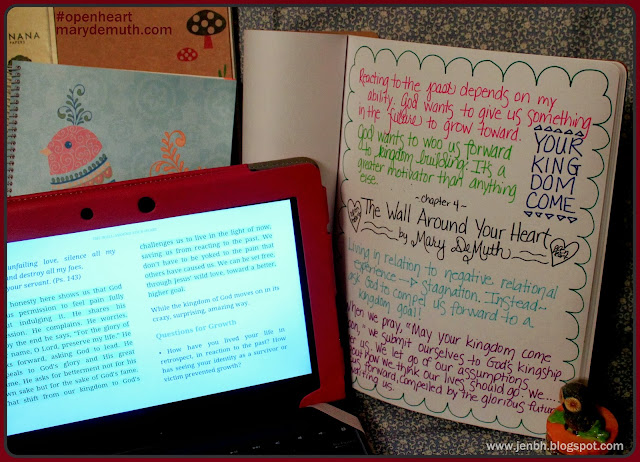 #openheart
marydemuth.com
NANA
PAPERS
unfailing love, silence all my
and destroy all my foes,
your servant. (Ps. 143)
honesty here shows us that God
us permission to feel pain fully
out indulging it. He shares his
ession. He complains. He worries.
by the end he says, "For the glory of
name, O Lord, preserve my life." He
ks forward, asking God to lead. He
peals to God's glory and His great
me. He asks for betterment not for his
wn sake but for the sake of God's fame.
hat shift from our kingdom to God's
challenges us to live in the light of now,
saving us from reacting to the past. We
don't have to be yoked to the past that
others have caused us. We can be set free,
through Jesus' wild love, toward a better,
higher goal.
While the kingdom of God moves on in its
crazy, surprising, amazing way.
Questions for Growth
• How have you lived your life in
retrospect, in reaction to the past? How
has seeing your identity as a survivor or
victim prevented growth?
Reacting to the past depends on my
ability. God wants to give us something
in the future to grow toward.
God wants to woo us forward
to kingdom building. It's a
greater motivator than anything
else.
YOUR
KING
DOM
COME
~chapter 4~
The Wall Around Your Heart
by Mary DeMuth
Living in relation to negative relational
experience → stagnation. Instead~
God to compel us forward to a
kingdom goal!
When we pray, "May your kingdom come
" we submit ourselves to God's kingship
us. We let go of our assumptions
about how we think our lives should go. We...
forward, compelled by the glorious future
us.
www.jenbh.blogspot.com